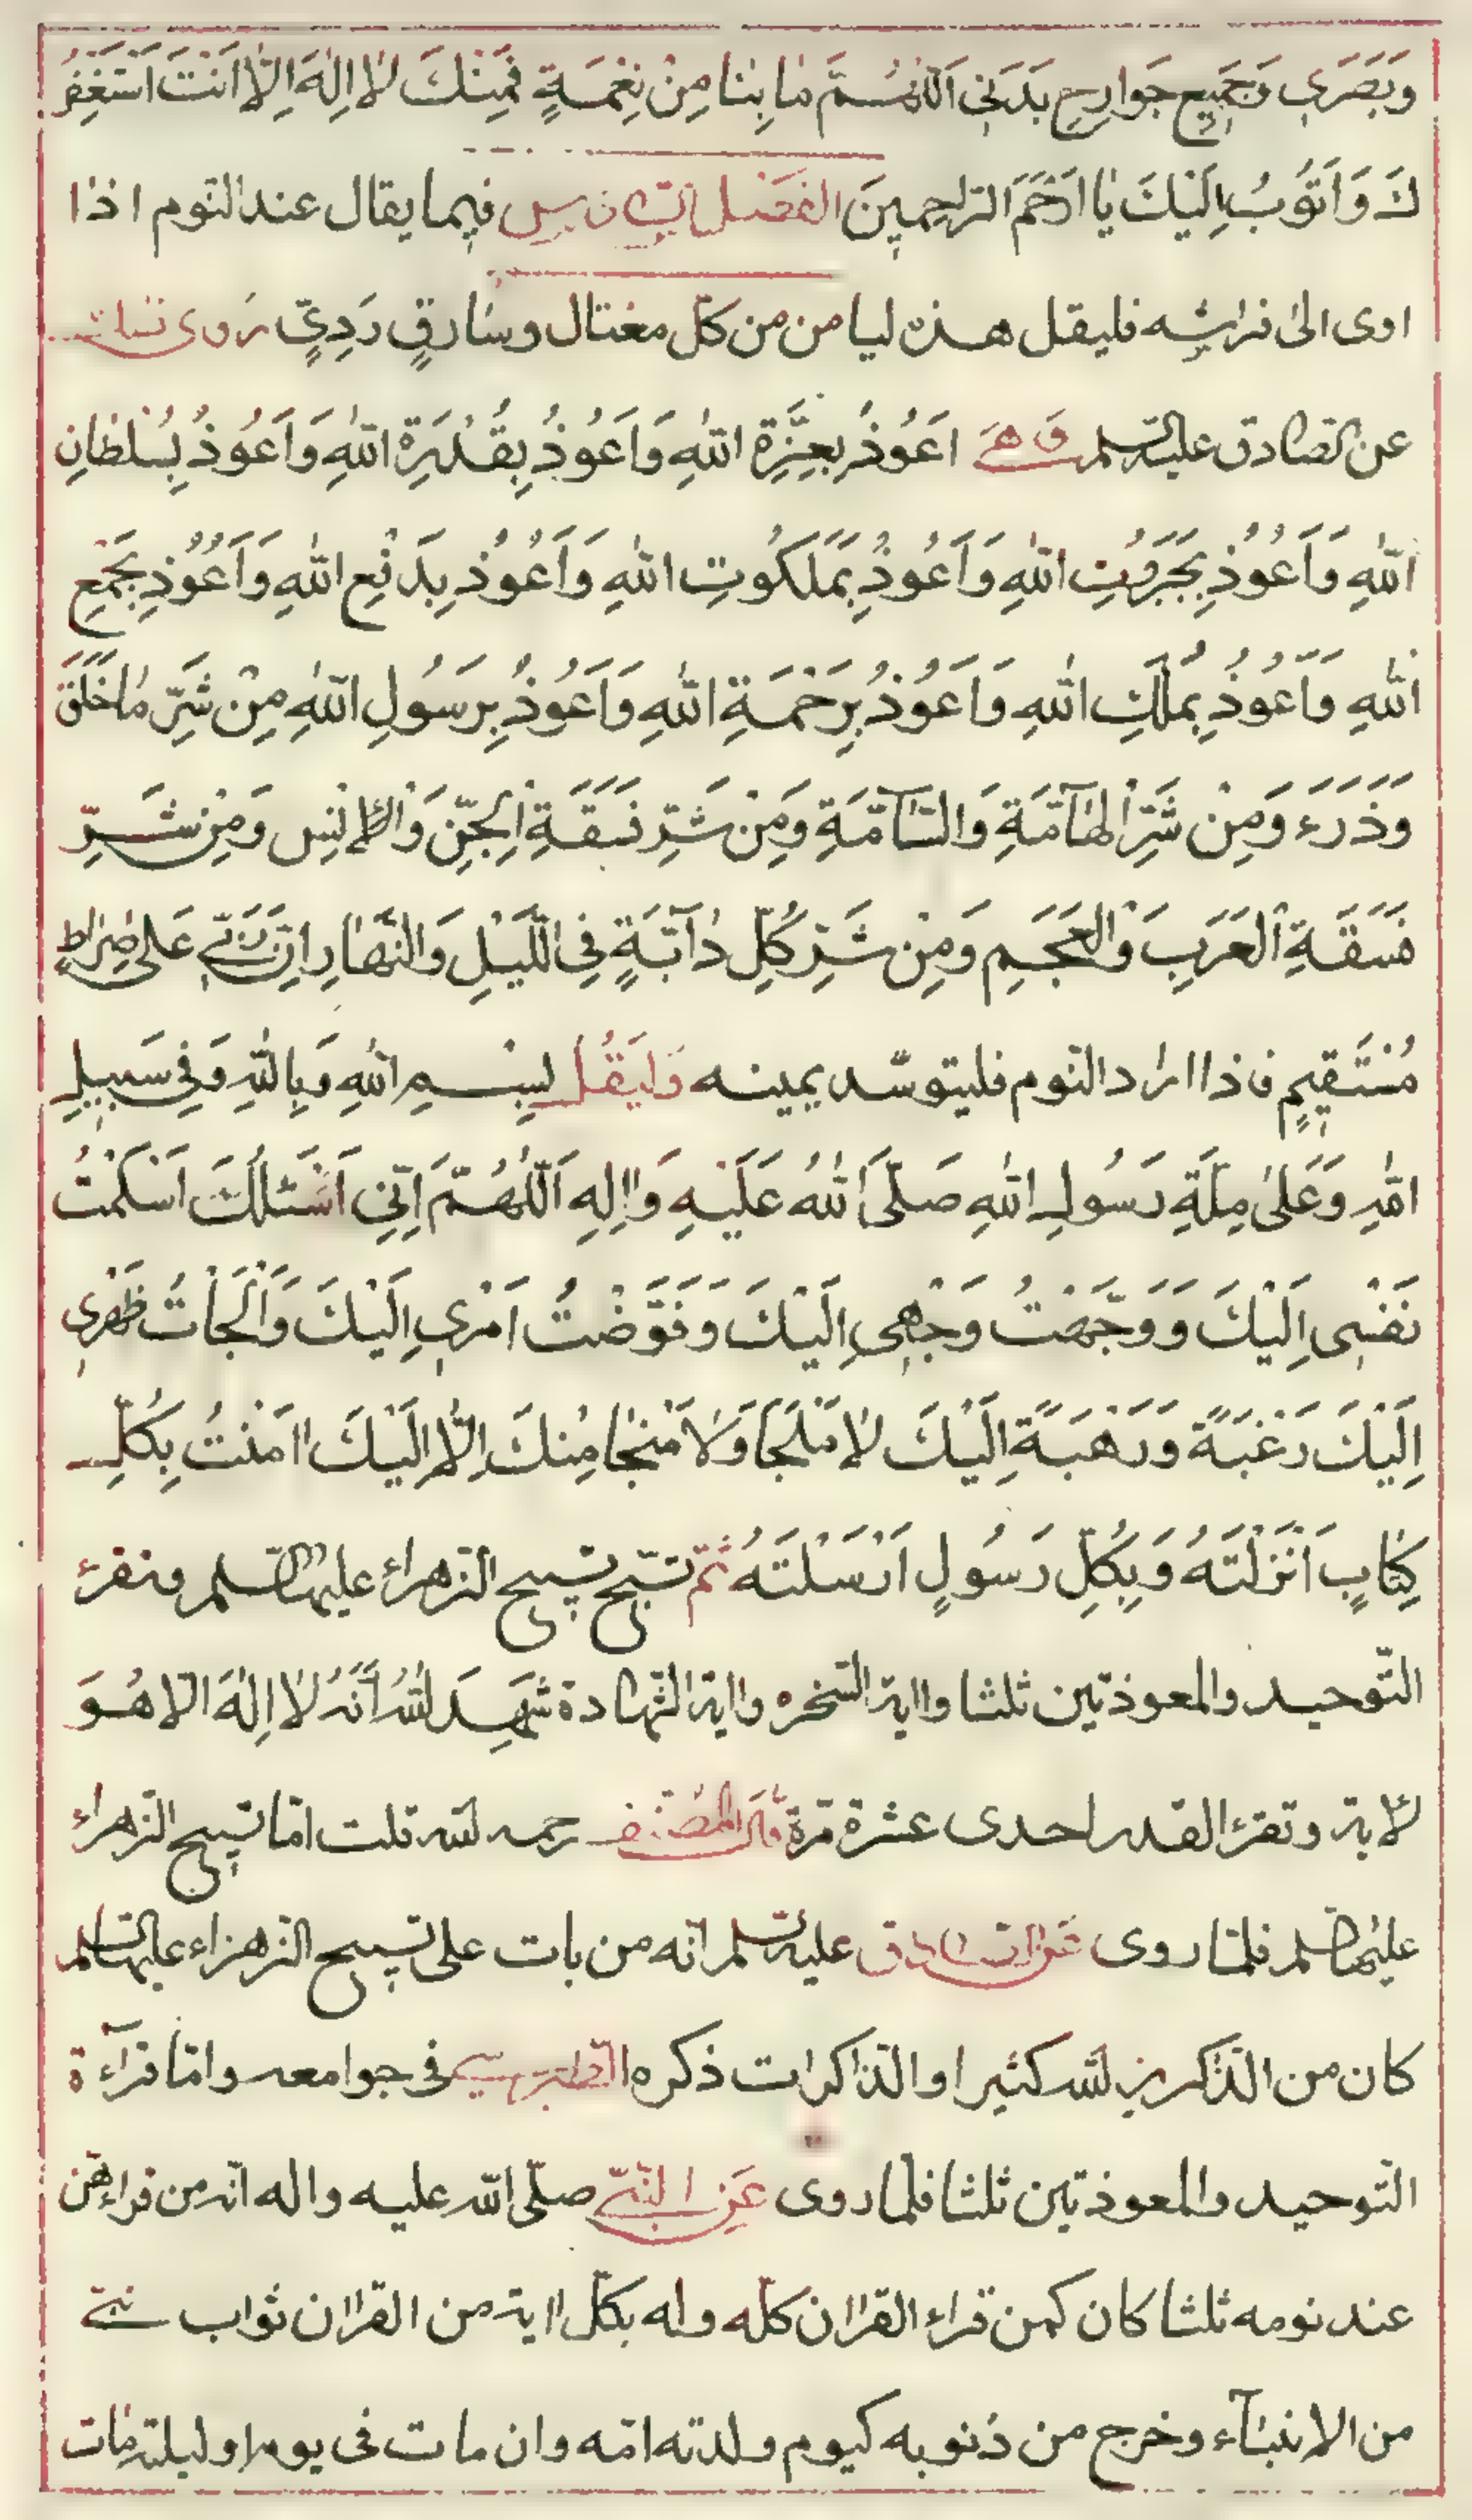 وَبَصَرَي وَجَمَيعِ جَوَارِحِ بَدَنَي اَللّٰهُمَّ مٰا بِنٰا مِنْ نِعْمَةٍ فَمِنْكَ لٰا اِلٰهَ اِلّٰا اَنْتَ اَسْتَغْفِرُ
كَ وَاَتَوُبُ اِلَيْكَ يٰا اَرْحَمَ الرّٰاحِمِينَ الفَصْل السّادس فيما يقال عند النّوم اذا
اوى الىٰ فراشه فليقل هذه ليامن من كلّ مغتال وسٰارقٍ رَدِيٍّ رَوى ذلك
عن الصّادق عليه السلم وَهيَ اَعُوذُ بِعِزَّةِ اللّٰهِ وَاَعُوذُ بِقُدْرَةِ اللّٰهِ وَاَعُوذُ بِسُلْطٰانِ
اللّٰهِ وَاَعُوذُ بِجَبَرُوتِ اللّٰهِ وَاَعُوذُ بِمَلَكُوتِ اللّٰهِ وَاَعُوذُ بِدَفْعِ اللّٰهِ وَاَعُوُذُ بِجَمْعِ
اللّٰهِ وَاَعُوذُ بِمُلْكِ اللّٰهِ وَاَعُوذُ بِرَحْمَةِ اللّٰهِ وَاَعُوذُ بِرَسُولِ اللّٰهِ مِنْ شَرِّ مٰا خَلَقَ
وَذَرَءَ وَمِنْ شَرِّ الْهٰآمَّةِ وَالسّٰآمَّةِ وَمِنْ شَرِّ فَسَقَةِ الْجِنِّ وَالْاِنْسِ وَمِنْ شَرِّ
فَسَقَةِ الْعَرَبِ وَالْعَجَمِ وَمِنْ شَرِّ كُلِّ دٰآبَّةٍ فِي اللَّيْلِ وَالنَّهٰارِ اِنَّ رَبّي عَلى صِرٰاطٍ
مُسْتَقِيمٍ فاذا اراد النّوم فليتوسّد يمينه وَليَقُل بِسْمِ اللّٰهِ وَبِاللّٰهِ وَفِي سَبِيلِ
اللّٰهِ وَعَلىٰ مِلَّةِ رَسُولِ اللّٰهِ صَلَّى اللّٰهُ عَلَيْهِ وَاٰلِهِ اَللّٰهُمَّ اِنّي اَسْئَلُكَ اَسْلَمْتُ
نَفْسِي اِلَيْكَ وَوَجَّهْتُ وَجْهِي اِلَيْكَ وَفَوَّضْتُ اَمْرِي اِلَيْكَ وَاَلْجَأتُ ظَهْرِي
اِلَيْكَ رَغْبَةً وَرَهْبَةً اِلَيْكَ لٰا مَلْجَاَ وَلٰا مَنْجٰا مِنْكَ اِلّٰا اِلَيْكَ اٰمَنْتُ بِكُلِّ
كِتٰابٍ اَنْزَلْتَهُ وَبِكُلِّ رَسُولٍ اَرْسَلْتَهُ ثمّ تسبّح تسبيح الزهراء عليها السلم وتقرء
التّوحيد والمعوذتين ثلثا واية السّخره واية الشّهادة شَهِدَ اللّٰهُ اَنَّهُ لٰا اِلٰهَ الّا هُوَ
الاية وتقرء القدر احدى عشرة مرّة قال المصنف رحمه الله قلت امّا تسبيح الزهراء
عليها السلم فلمٰا روى عَن الصادق عليه السلم انّه من بات على تسبيح الزهراء عليها السلم
كان من الذّاكرين لله كثيرا والذّاكرات ذكره الطبرسي فى جوامعه وامّا قراءة
التّوحيد والمعوذتين ثلثا فلما روى عَنِ النّبيّ صلّى الله عليه واله انه من قراهنّ
عند نومه ثلثا كان كمن قراء القراٰن كلّه وله بكلّ اٰية من القراٰن ثواب نبيّ
من الانبيٰآء وخرج من ذنوبه كيوم ولدته امّه وان مات فى يومه او ليلته مات